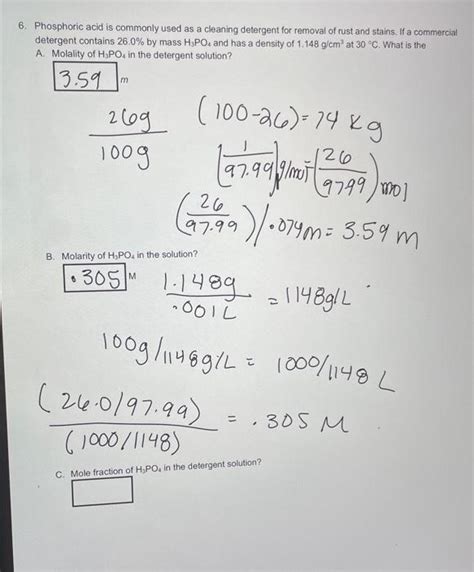 6. Phosphoric acid is commonly used as a cleaning detergent for removal of rust and stains. If a commercial
detergent contains 26.0% by mass H₃PO₄ and has a density of 1.148 g/cm³ at 30 °C. What is the
A. Molality of H₃PO₄ in the detergent solution?
3.59 m
26g / 100g
(100-26) = 74 kg
(1/97.99) g/mol = (26/97.99) mol
(26/97.99) / .074m = 3.59 m
B. Molarity of H₃PO₄ in the solution?
.305 M
1.148g / .001L = 1148g/L
100g/1148g/L = 1000/1148 L
(26.0/97.99) / (1000/1148) = .305 M
C. Mole fraction of H₃PO₄ in the detergent solution?